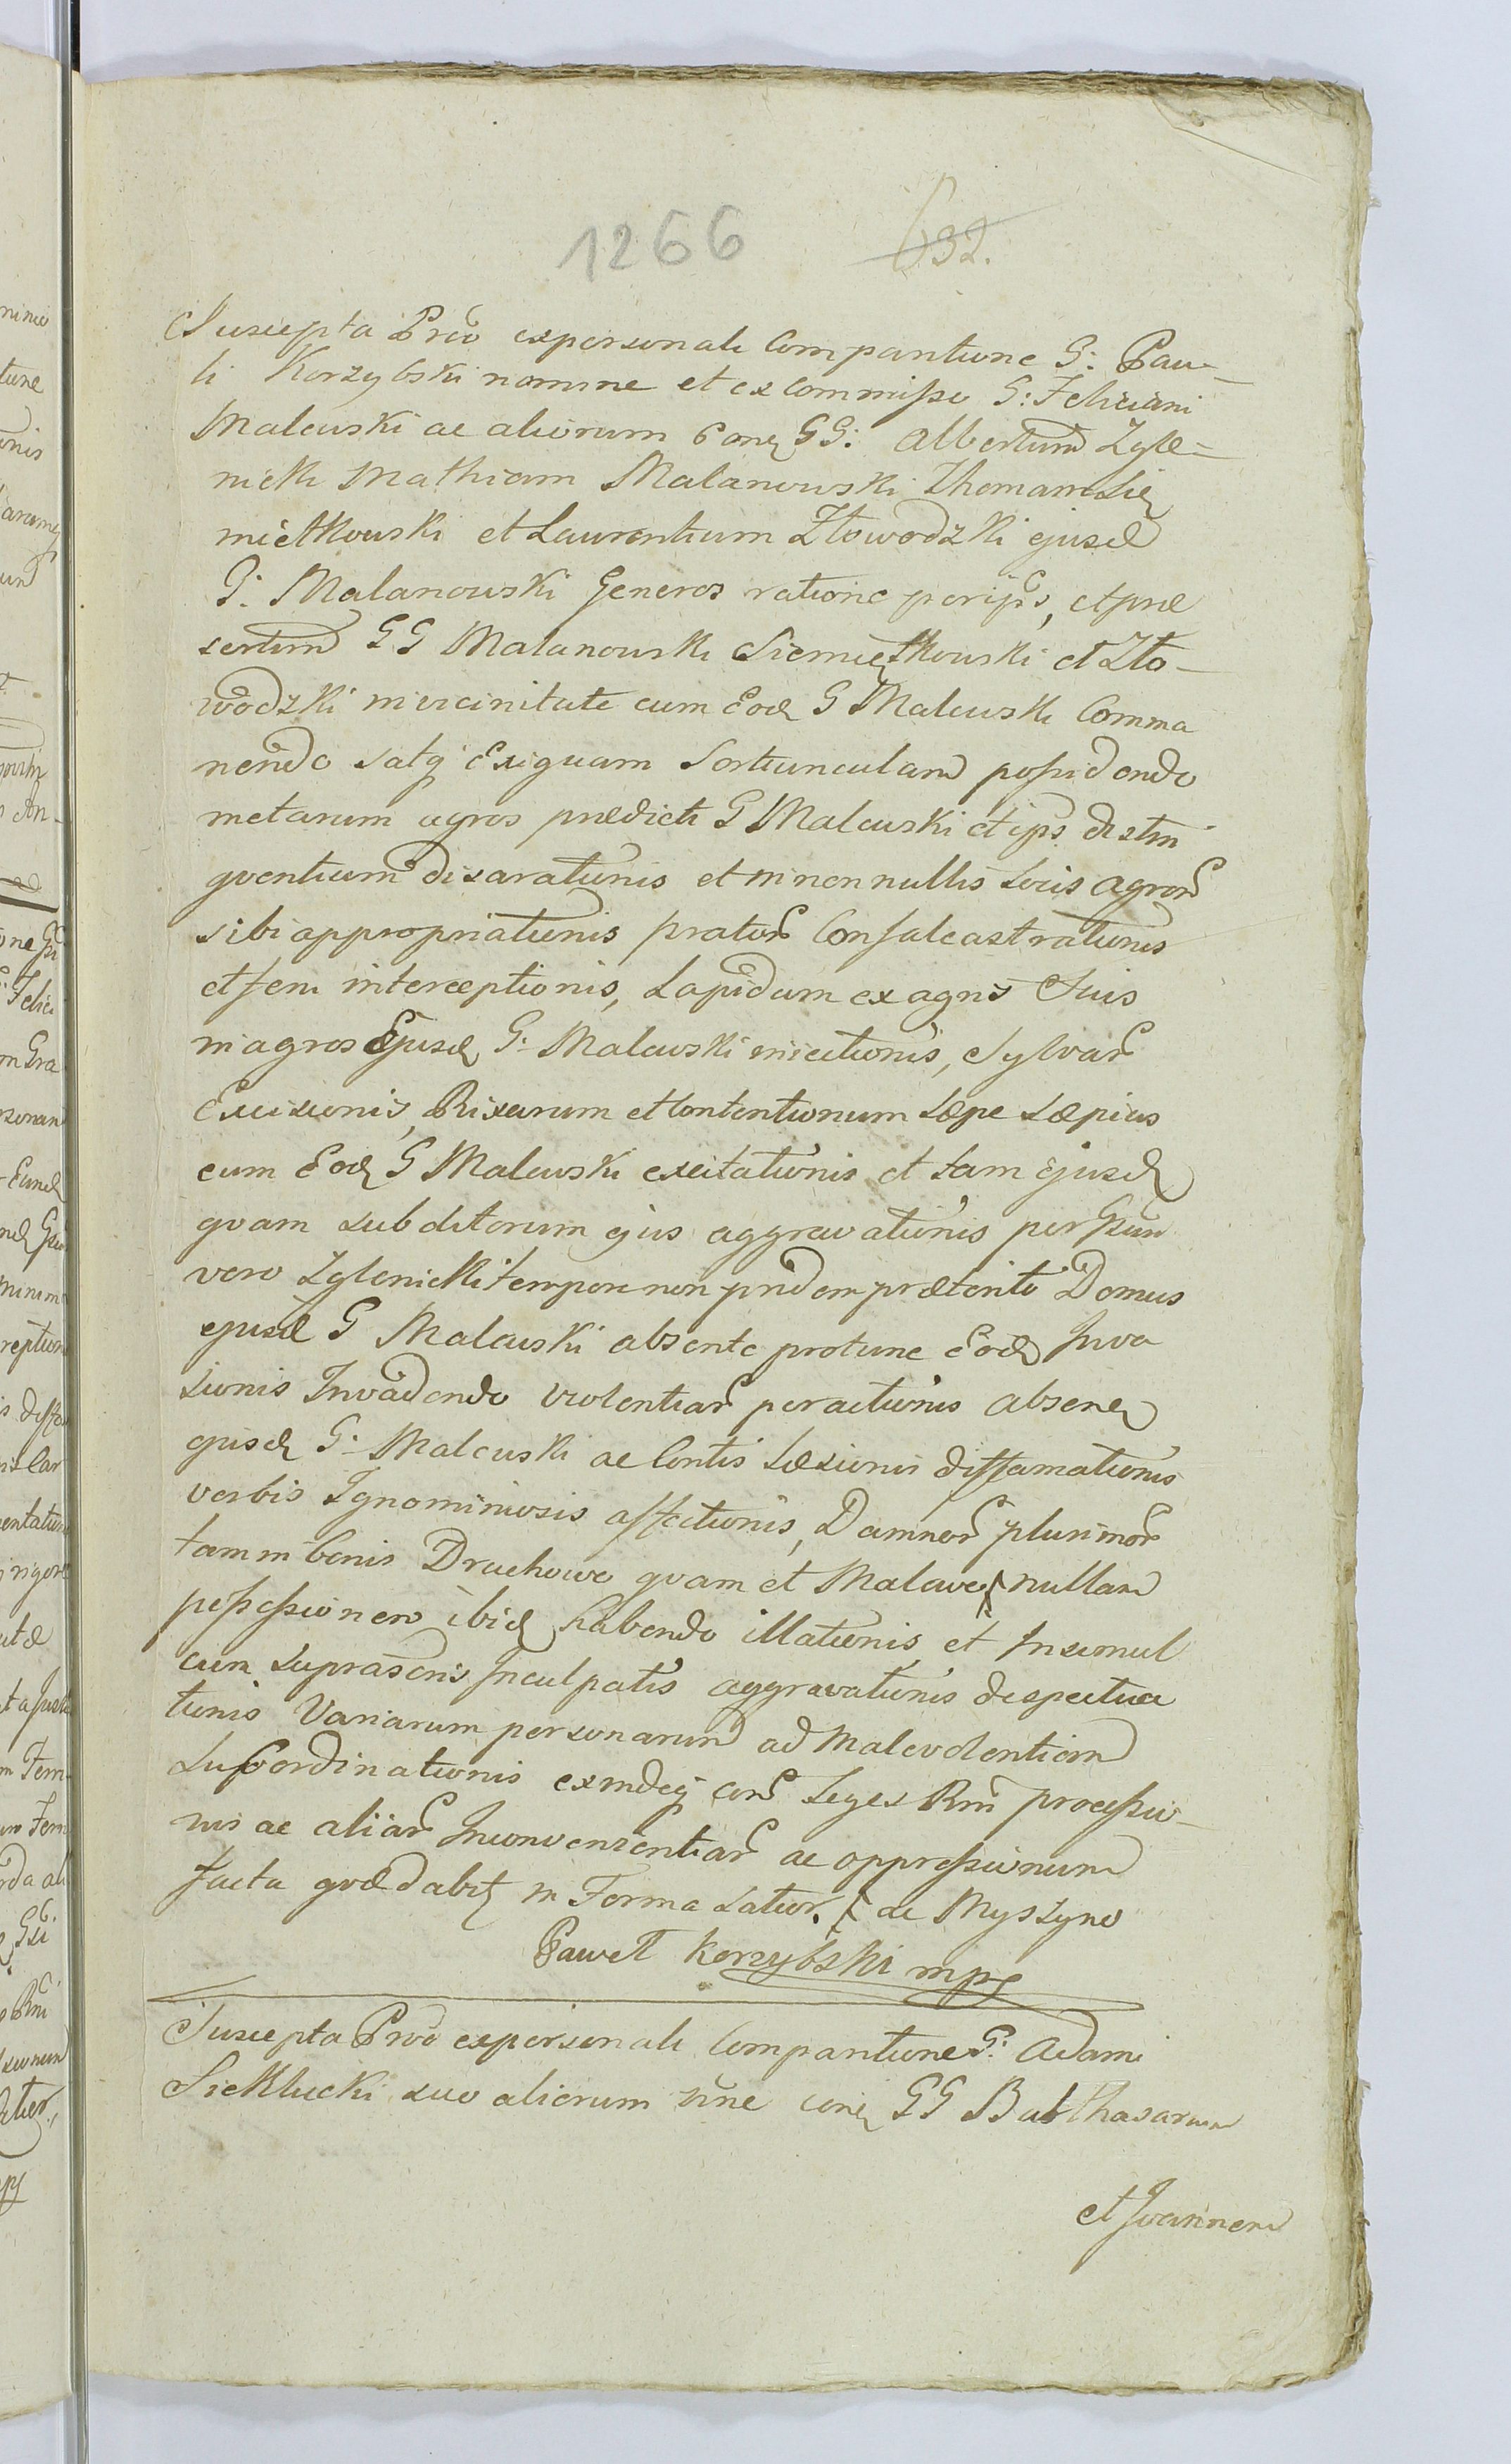 1266 632.
Suscepta Prõ expersonali Comparitione G: Pau-
li Korzybski nomine et ex Commisso G: Feliciani
Malewski ac aliorum cone GG: Albertum Zgle-
nicki Mathiam Malanowski Thomam Sie
miętkowski et Laurentium Złowodzki ejusd
G: Malanowski Generos ratione per ipos, et præ
sertim GG Malanowski Siemiętkowski et Zło-
wodzki in vicinitate cum Eod G Malewski Comma
nendo satq Exiguam Sortiunculam possidendo
metarum agros prædicti G Malewski et ips distin
gventium disarationis et in nonnullis Locis agror
sibi appropriationis prator Confalcastrationis
et feni interceptionis, Lapidum ex agris Suis
in agros Ejusd G: Malewski iniectionis, Sylvar
Excisionis, Rixarum et Contentionum sæpe sæpius
cum Eod G Malewski excitationis et tam ejusd
qvam subditorum ejus aggravationis per Gsum
vero Zglenicki tempore non pridem præterito Domus
ejusd G Malewski absente protunc Eod Inva
sionis Invadendo violentiar peractionis absene
ejusd G: Malewski ac Contis Læsionis diffamationis
verbis Ignominiosis affectionis, Damnor plurimor
tam in bonis Drachowo qvam et Malewo nullam
possessionem ibid habendo illationis et Insimul
cum suprascris Inculpatis aggravationis despectua
tionis Variarum personarum ad Malevolentiam
Subordinationis exindeq con Leges Rni processio-
nis ac aliar Inconvenientiar ac oppressionum
facta qvæ dabit in Forma Latior. de Myszyno
Paweł Korzybski mpp
Suscepta Prõ expersonali Comparitione G: Adami
Sieklucki suo aliorum nne cone GG Balthasarum
et Joannem